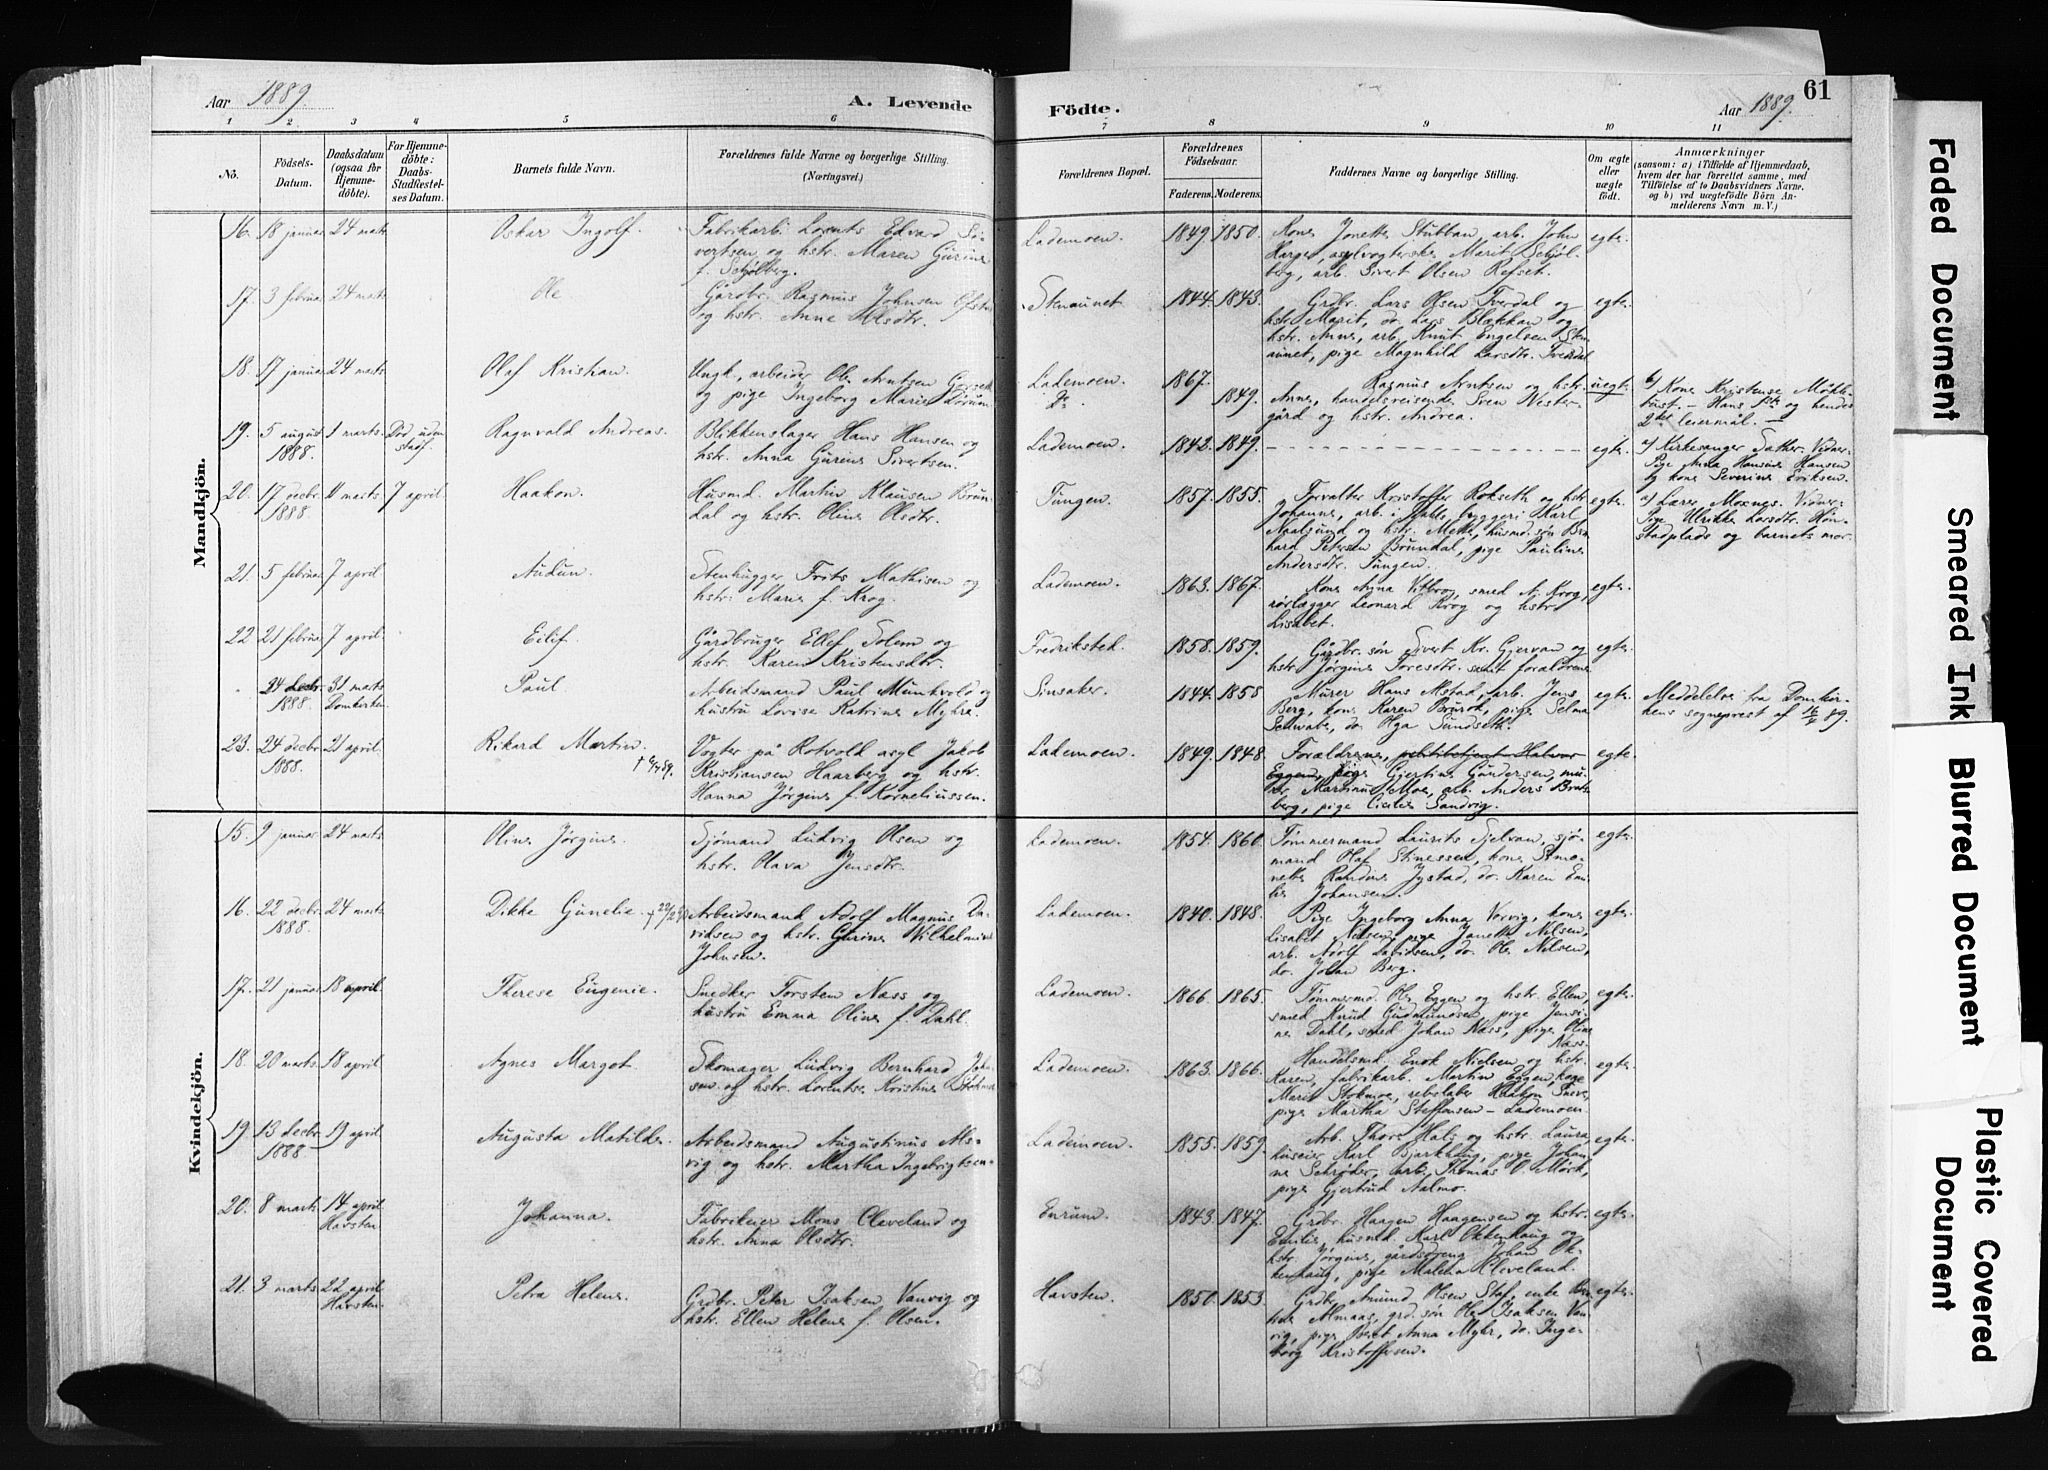 Aar 1889. A. Levende
Födte. Aar 1889. 61
1 2 3 4 5 6 7 8 9 10 11
Nö.
Födsels-
Datum.
Daabsdatum
(ogsaa for
Hjemme-
döbte).
For Hjemme-
döbte:
Daabs-
Stadfæstel-
ses Datum.
Barnets fulde Navn.
Forældrenes fulde Navne og borgerlige Stilling.
(Næringsvei.)
Forældrenes Bopæl.
Forældrenes
Födselsaar.
Faderens. Moderens.
Faddernes Navne og borgerlige Stilling.
Om ægte
eller
uægte
födt.
Anmærkninger
(saasom: a) i Tilfælde af Hjemmedaab,
hvem der har forrettet samme, med
Tilföielse af to Daabsvidners Navne.
og b) ved uægtefödte Börn An-
melderens Navn m. V.)
Mandkjön.
16. 18 januar 24 marts Oskar Ingolf. Fabrikarb. Lorents Edvard Si-
vertsen og hstr. Maren Gurine
f. Schjølberg.
Lademoen. 1849. 1850. Kone Jonette Stubban, arb. John
Harper, asylvogterske Marit Schjøl-
berg, arb. Sivert Olsen Refset.
egte.
17. 3 februar 24 marts Ole Gårdbr. Rasmus Johnsen
og hstr. Anne Olsdtr.
Stenaunet 1844. 1843. Grdbr. Lars Olsen Tverdal og
hstr. Marit, do. Lars Blækkan og
hstr. Anne, arb. Knut Engelsen Sten-
aunet, pige Magnhild Larsdtr. Tverdal
egte.
18. 17 januar 24 marts Olaf Kristian. Ungk., arbeider Ole Arntsen
og pige Ingeborg Marie
Lademoen. 1867.
do. 1849.
Rasmus Arntsen og hstr.
Anne, handelsreisende Sven Vester-
gård og hstr. Andrea.
uegte
b) Kone Kristense
Hans 1ste og hendes
2det leiermål.
19. 5 august 1 marts. Død uden Ragnvald Andreas. Blikkenslager Hans Hansen og
1888. stadf. hstr. Anna Gurine Sivertsen.
Lademoen. 1842. 1849. egte.
a) Kirkesanger Sather. Vidner
Pige Anna Hansine Hansen
og kone Severine Eriksen.
20. 17 decbr. 11 marts. 7 april Haakon. Husmd. Martin Klausen Brun-
1888. dal og hstr. Oline Olsdtr.
Tungen. 1857. 1855. Forvalter Kristoffer Rokseth og hstr.
Johanne, arb. i Karl
Naalsund og hstr. Mette, husmd. søn Ber-
hard Petersen Brundal, pige Pauline
Andersdtr. Tungen.
egte.
a) Lærer Moxnes. Vidner
Pige Ulrikke Larsdtr. Røn-
stadplads og barnets mor.
21. 5 februar 7 april. Audun. Stenhugger Frits Mathisen og
hstr. Marie f. Krog.
Lademoen. 1863. 1867. Kone Anna Vibrog, smed A. Krog,
rørlægger Leonard Krog og hstr.
Lisabet.
egte.
22 21 februar 7 april. Eilif. Gårdbruger Ellef Solem og
hstr. Karen Kristensdtr.
Fredriksted. 1858. 1859. Gårdbr. søn Sivert Kr. Gjervan og
hstr. Jørgine Toresdtr. samt forældrene
egte.
24 decbr. 31 marts Paul. Arbeidsmand Paul Munkvold og
1888. Domkirken. hustru Lovise Katrine Myhre.
Sinsaker. 1844. 1858 Murer Hans Mstad, arb. Jens
Berg, kone Karen Brurok, pige Selma
Schwabe, do. Olga Sundseth.
egte.
Meddelelse fra Domkir-
kens sogneprest af 16/4 89.
23. 24 decbr. 21 april. Rikard Martin. Vogter på Rotvold asyl Jakob
1888. Kristiansen Haarberg og hstr.
Hanna Jørgine f. Korneliussen.
Lademoen. 1849. 1848. Forældrene, politibetjent Halvor
Eggen, pige Gjertine Gundersen, mu-
rer Martinus Moe, arb. Anders Brats-
berg, pige Cecilie Sandvig.
egte.
Kvindekjön.
15. 9 januar 24 marts. Oline Jørgine. Sjømand Ludvig Olsen og
hstr. Olava Jensdtr.
Lademoen. 1854. 1860. Tømmermand Laurits Sjelvan, sjø-
mand Olaf Stinessen, kone Simo-
nette Randine Jystad, do. Karen Emi-
lie Johansen.
egte.
16. 22 decbr. 24 marts Dikke Gunelie. Arbeidsmand Adolf Magnus Da-
1888. vidsen og hstr. Gurine Vilhelmine
Johnsen.
Lademoen. 1840. 1848. Pige Ingeborg Anna Vorvig, kone
Lisabet Nilsen, pige Janette Nilsen,
arb. Adolf Davidsen, do. Ole Nilsen,
do. Johan Berg.
egte.
17. 21 januar 18 april. Therese Eugenie. Snedker Torsten Næss og
hustru Emma Oline f. Dahl.
Lademoen. 1866. 1865. Tømmermd. Ole Eggen og hstr. Ellen,
smed Knud Gudmundsen, pige Jensi-
ne Dahl, smed Johan Næss, pige Oline
Næss.
egte.
18. 20 marts. 18 april Agnes Margot. Skomager Ludvig Bernhard Johan-
sen og hstr. Lorentse Kristine
Lademoen. 1863. 1866. Handelsmd. Enok Nielsen og hstr.
Karen, fabrikarb. Martin Eggen, kone
Marit Stokmoe, rebslaber Haakon
pige Martha Steffensen - Lademoen
egte.
19. 13 decbr. 19 april Augusta Matilde. Arbeidsmand Augustinus Als-
1888 vig og hstr. Martha Ingebrigtsen.
Lademoen. 1855. 1859. Arb. Thore Hals og hstr. Laura,
huseier Karl Bjørkhaug, pige Johan-
ne Schrøder, arb. Thomas O. Mørk,
pige Gjertrud Aalmo.
egte.
20. 8 marts. 14 april Johanna. Fabrikeier Mons Cleveland og
Havsten. hstr. Anna Olsdtr.
Enrum. 1843. 1847. Grdbr. Haagen Haagensen og hstr.
Emilie, husmd. Karl Okkenhaug og
hstr. Jørgine, gårdsdreng Johan Ok-
kenhaug, pige Malena Kleveland.
egte.
21. 3 marts. 22 april Petra Helene. Grdbr. Peter Isaksen Vanvig og
Havsten. hstr. Ellen Helene f. Olsen.
Havsten. 1850. 1853. Grdbr. Amund Olsen Stav, enke Be-
Almaas, grd. søn Ole Isaksen Van-
vig, pige Beret Anna Myhr, do. Inge-
borg Kristoffersen.
egte.
Faded Document
Smeared Ink
Blurred Document
Plastic Covered
Document